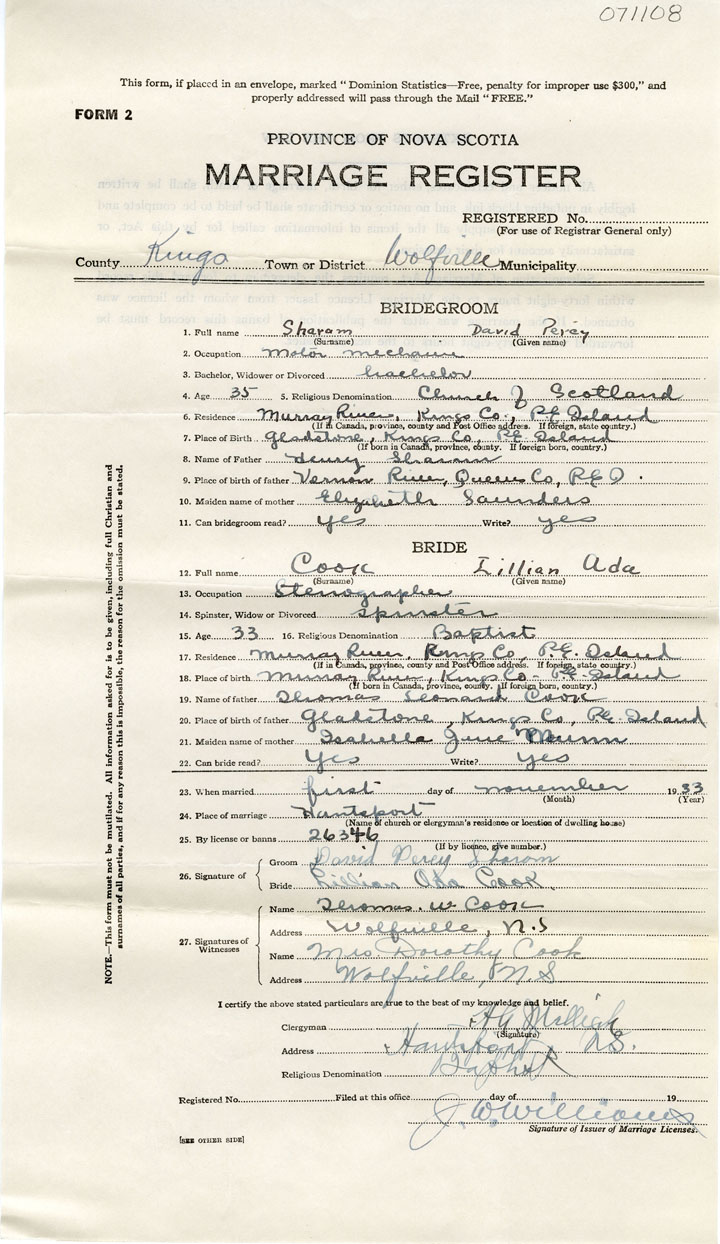 071108
This form, if placed in an envelope, marked "Dominion Statistics—Free, penalty for improper use $300," and
properly addressed will pass through the Mail "FREE."
FORM 2
PROVINCE OF NOVA SCOTIA
MARRIAGE REGISTER
REGISTERED No.
(For use of Registrar General only)
County Kings Town or District Wolfville Municipality
BRIDEGROOM
1. Full name Sharam David Percy
(Surname) (Given name)
2. Occupation Motor mechanic
3. Bachelor, Widower or Divorced bachelor
4. Age 35 5. Religious Denomination Church of Scotland
6. Residence Murray River, Kings Co., P.E. Island
(If in Canada, province, county and Post Office address. If foreign, state, country.)
7. Place of Birth Gladstone, Kings Co, P.E. Island
(If born in Canada, province, county. If foreign born, country.)
8. Name of Father Henry Sharam
9. Place of birth of father Vernon River, Queens Co, P.E.I.
10. Maiden name of mother Elizabeth Saunders
11. Can bridegroom read? yes Write? yes
BRIDE
12. Full name Cook Lillian Ada
(Surname) (Given name)
13. Occupation Stenographer
14. Spinster, Widow or Divorced spinster
15. Age 33 16. Religious Denomination Baptist
17. Residence Murray River, Kings Co, P.E. Island
(If in Canada, province, county and Post Office address. If foreign, state, country.)
18. Place of birth Murray River, Kings Co - P.E. Island
(If born in Canada, province, county. If foreign born, country.)
19. Name of father Thomas Leonard Cook
20. Place of birth of father Gladstone, Kings Co, P.E. Island
21. Maiden name of mother Isabella June Munn
22. Can bride read? Yes Write? Yes
23. When married first day of november 1933
(Month) (Year)
24. Place of marriage Hantsport
(Name of church or clergyman's residence or location of dwelling house)
25. By license or banns 26346
(If by licence, give number.)
26. Signature of
Groom David Percy Sharam
Bride Lillian Ada Cook
27. Signatures of Witnesses
Name Thomas. W Cook
Address Wolfville, N.S
Name Mrs Dorothy Cook
Address Wolfville, N.S
I certify the above stated particulars are true to the best of my knowledge and belief.
Clergyman
(Signature)
Address Hantsport N.S.
Religious Denomination Baptist
Registered No. Filed at this office day of 19
J. W. Williams
Signature of Issuer of Marriage Licenses.
[SEE OTHER SIDE]
NOTE.—This form must not be mutilated. All information asked for is to be given, including full Christian and
surnames of all parties, and if for any reason this is impossible, the reason for the omission must be stated.